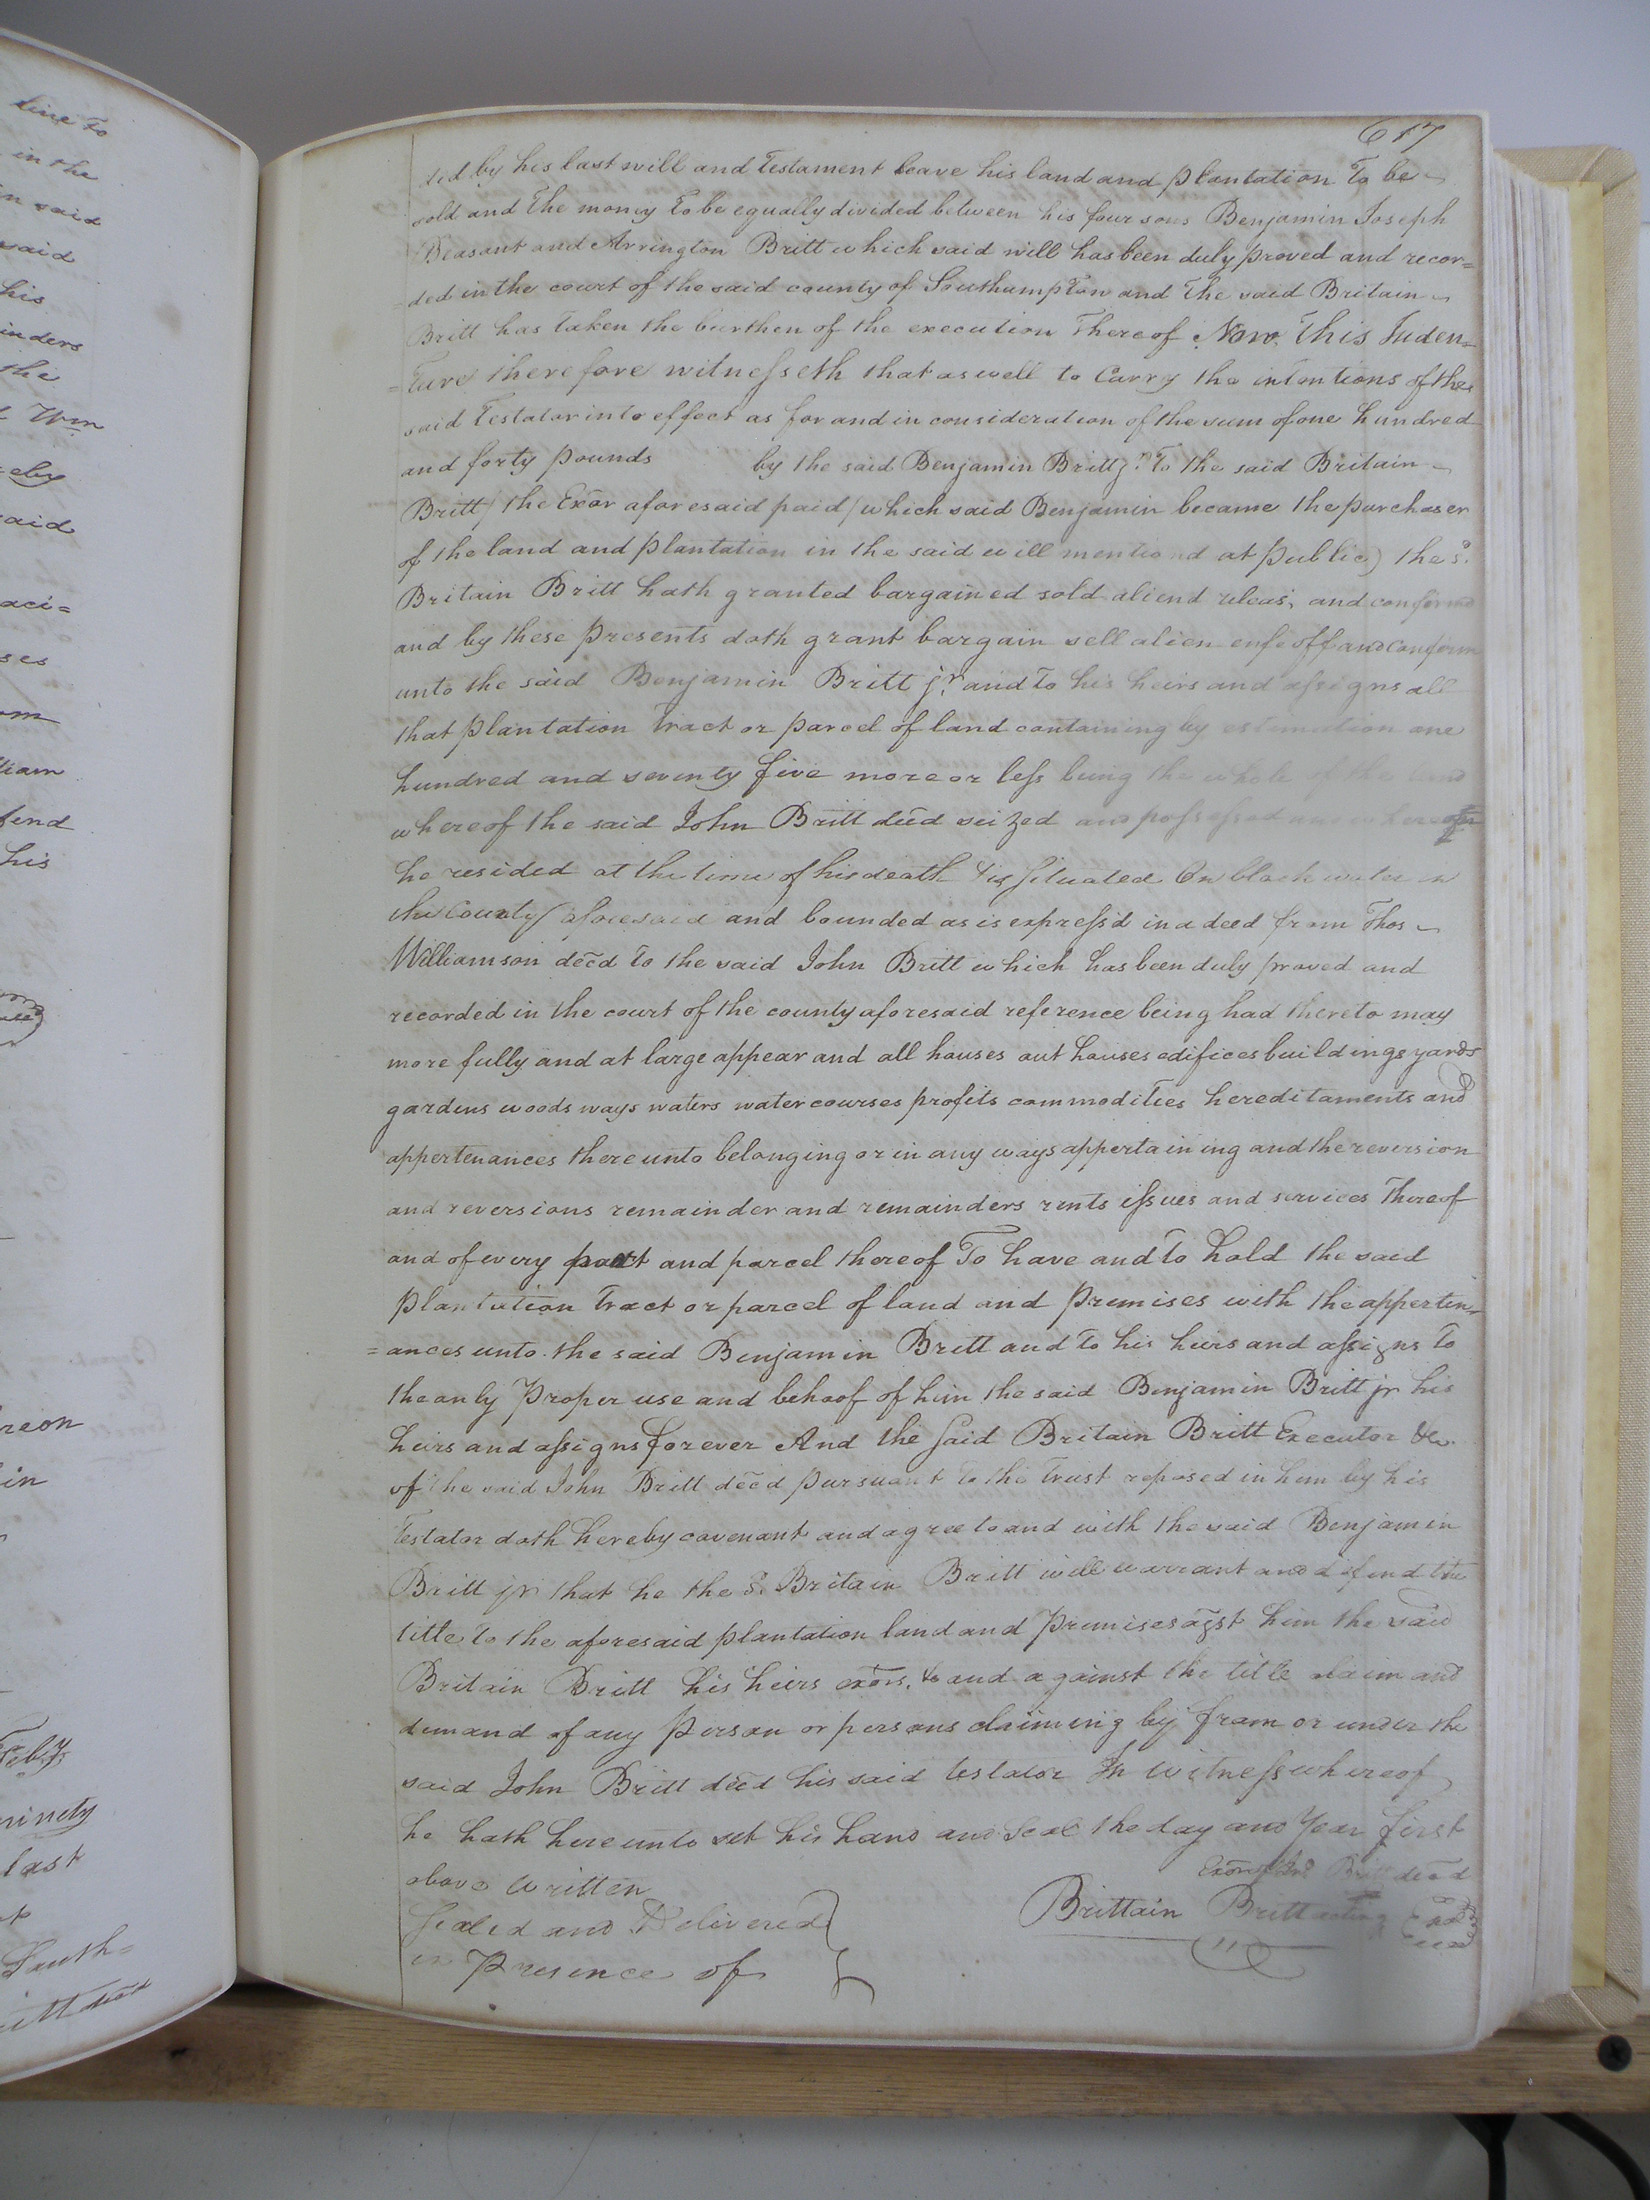 line to
in the
in said
said
his
inders
the
Wm
eby
said
aci=
ses
om
liam
fend
his
reon
in
Feby
ninety
last
South=
617
did by his last will and Testament leave his land and plantation To be
sold and The money To be equally divided between his four sons Benjamin Joseph
Pleasant and Arrington Britt which said will has been duly proved and recor=
ded in the court of the said county of Southampton and The said Britain
Britt has Taken the burthen of the execution Thereof Now This Inden=
=Ture therefore witnesseth that as well to Carry the intentions of the
said Testator into effect as for and in consideration of the sum of one hundred
and forty pounds by the said Benjamin Britt jr To the said Britain
Britt / the Exor aforesaid paid / which said Benjamin became the purchaser
of the land and plantation in the said will mentiond at public) the sd
Britain Britt hath granted bargained sold aliend releas, and confirmd
and by these presents doth grant bargain sell alien enfeoff and confirm
unto the said Benjamin Britt jr and To his heirs and assigns all
that plantation Tract or parcel of land containing by estimation one
hundred and seventy five more or less being the whole of the land
whereof the said John Britt decd seized and possessed and whereof
he resided at the time of his death & is situated On black water in
the County aforesaid and bounded as is express'd in a deed from Thos
Williamson decd To the said John Britt which has been duly proved and
recorded in the court of the county aforesaid reference being had thereto may
more fully and at large appear and all houses out houses edifices buildings yards
gardens woods ways waters water courses profits commodities hereditaments and
appertenances there unto belonging or in any ways appertaining and the reversion
and reversions remainder and remainders rents issues and services Thereof
and of every part and parcel thereof To have and To hold the said
plantation Tract or parcel of land and Premises with the apperten=
=ances unto the said Benjamin Britt and to his heirs and assigns To
the only Proper use and behoof of him the said Benjamin Britt jr his
heirs and assigns forever And the said Britain Britt Executor &c.
of the said John Britt decd pursuant To the Trust reposed in him by his
Testator doth hereby covenant and agree to and with the said Benjamin
Britt jr that he the sd Britain Britt will warrant and defend the
title To the aforesaid plantation land and Premises agst him the said
Britain Britt his heirs exors, & and against the title claim and
demand of any Person or persons claiming by from or under the
said John Britt decd his said testator In witness whereof
he hath here unto set his hand and Seal the day and Year first
above written
Exor of Jno Britt decd
Sealed and Delivered
in Presence of
Brittain Britt acting